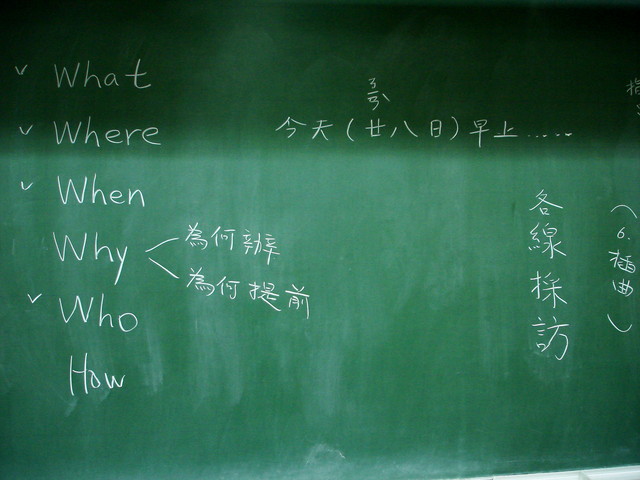 ✓ What
✓ Where
✓ When
Why
為何辦
為何提前
✓ Who
How
ㄋㄧㄢˋ
今天(廿八日)早上......
各線採訪
(6.插曲)